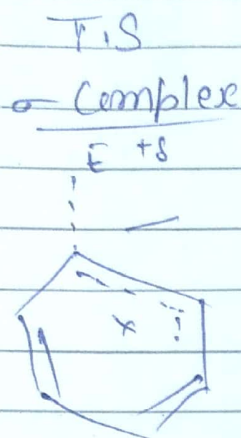 T.S
σ- Complex
E +δ